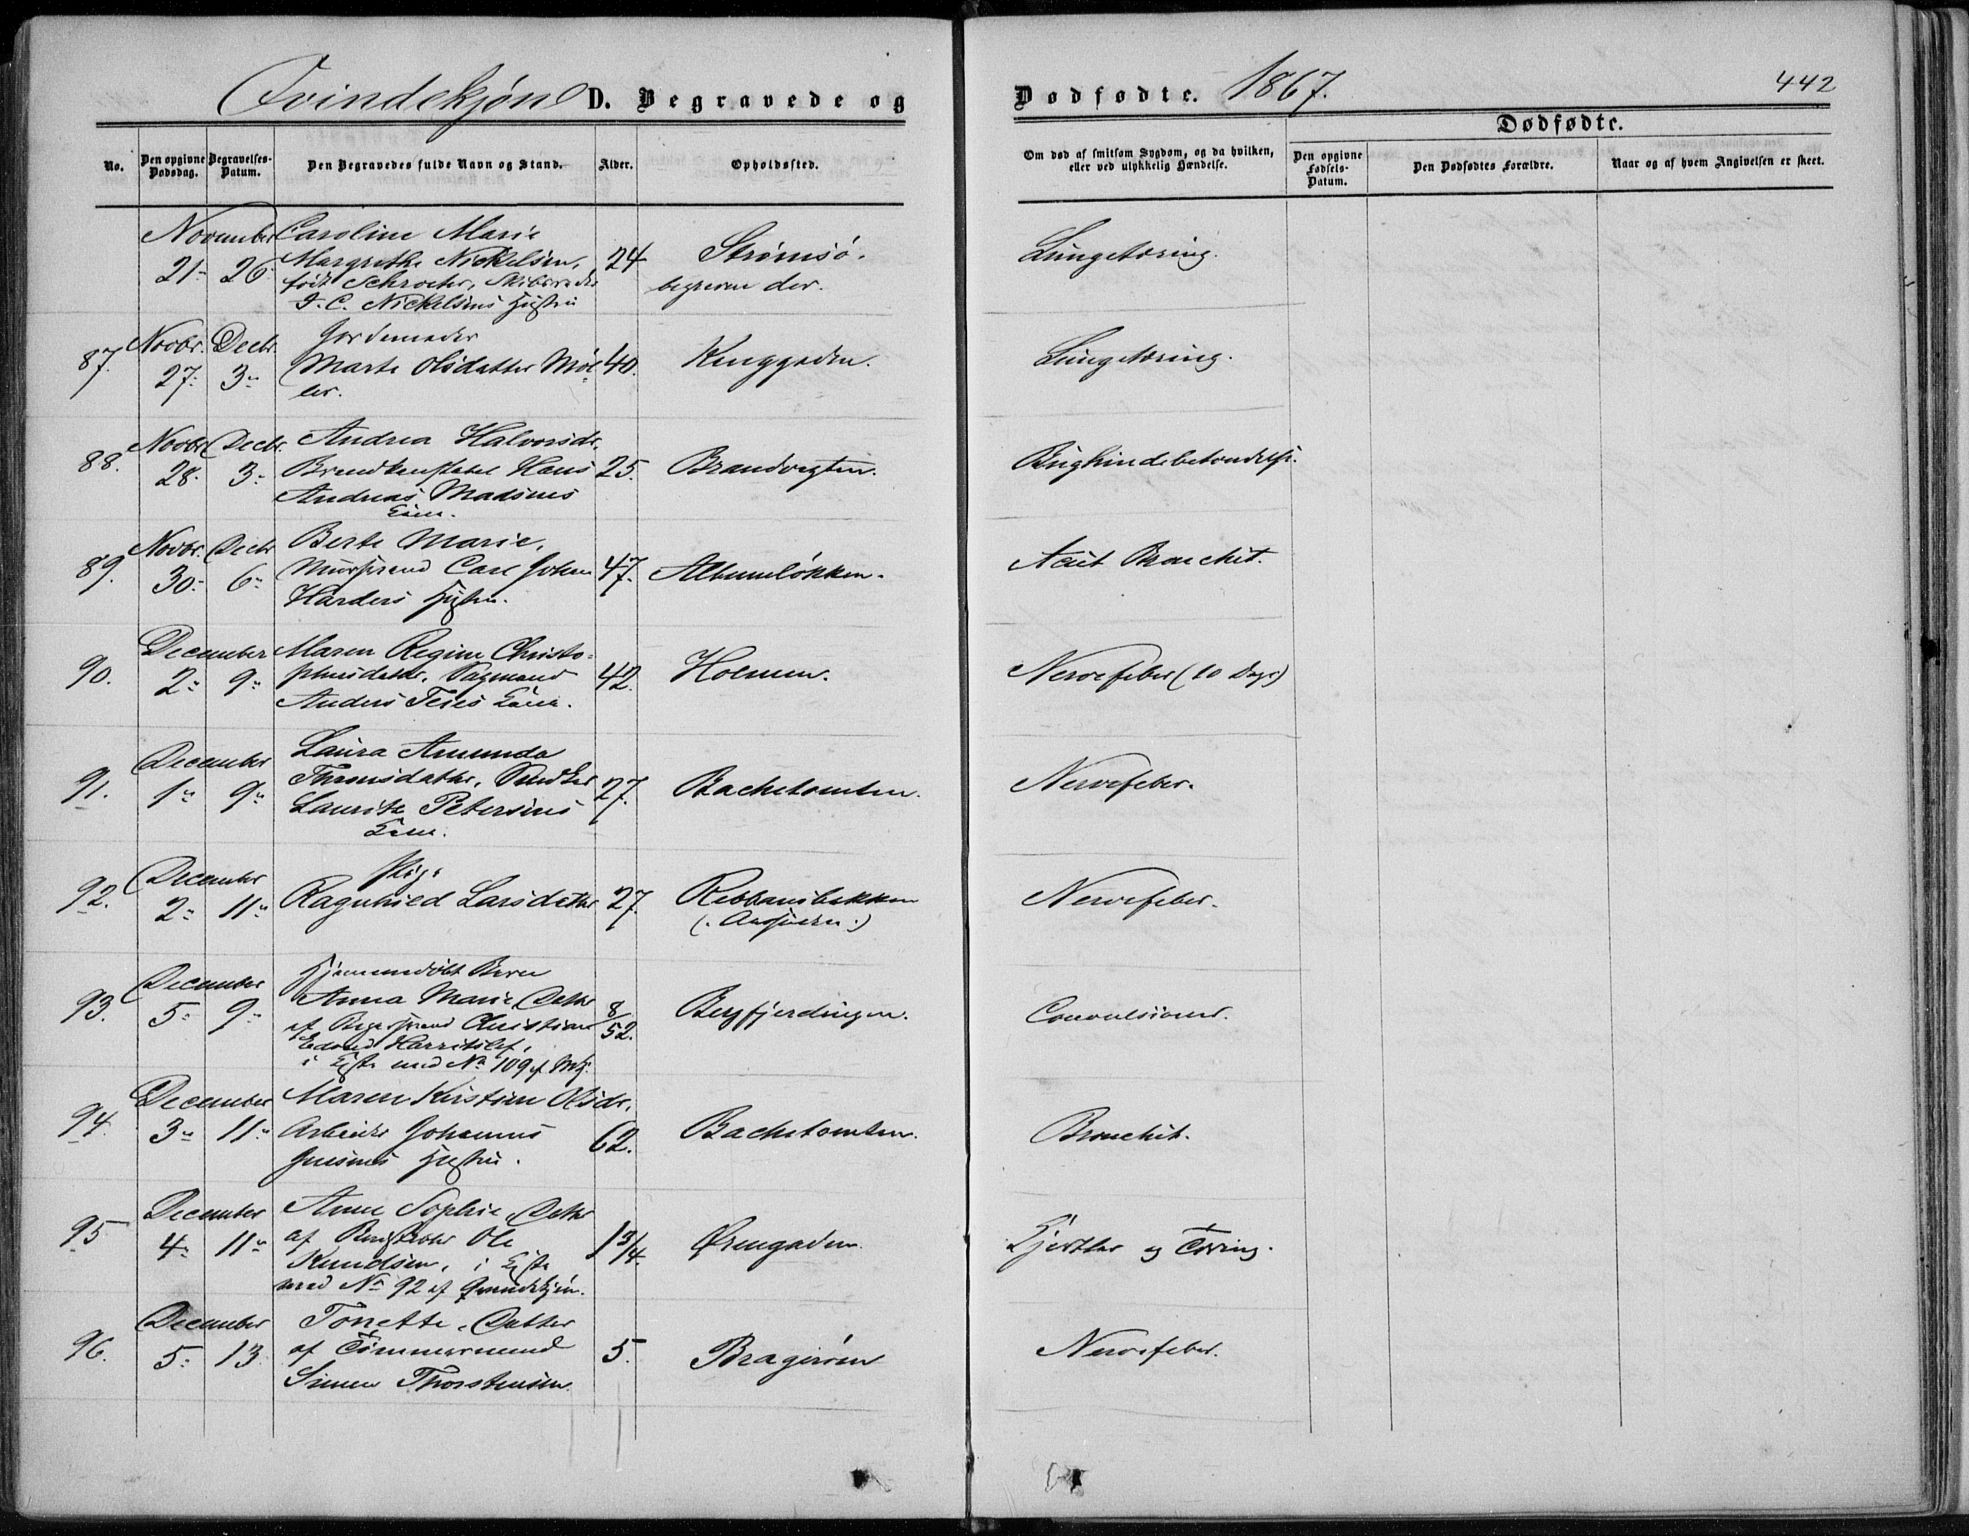 Qvindekjøn D. Begravede og
Dødfødte. 1867.
442
Dødfødte.
No.
Den opgivne Dødsdag.
Begravelses-Datum.
Den Begravedes fulde Navn og Stand.
Alder.
Opholdssted.
Om død af smitsom Sygdom, og da hvilken, eller ved ulykkelig Hændelse.
Den opgivne Fødsels-Datum.
Den Dødfødtes Forældre.
Naar og af hvem Angivelsen er skeet.
November Caroline Marie
21 26 Margrethe Nickelsen, 24 Strømsø. Lungetæring.
født Schroeter, begraven der.
J. C. Nickelsens Hustru
87. Novbr. Decbr. Jordemoder
27 3 Marte Olsdatter Møl 40. Kinggaden. Lungetæring.
ler.
88. Novbr. Decbr. Andrea Halvorsdr.
28 3 Brandkonstabel Hans 25. Brandvagten. Bughindebetændelse.
Andreas Madsens
Enke.
89. Novbr. Decbr. Berte Marie,
30 6 Murersvend Carl Johan 47. Albumløkken. Acut Bronchit.
Harders Hustru.
90. December Maren Regine Christo-
2 9 phersdatter, Sagmand 42. Holmen. Nervefeber (10 Dage)
Anders Enke.
91. December Laura Amunda
1 9 Thronsdatter, Snedker 27. Bachetomten. Nervefeber.
Lauritz Petersens
Enke.
92. December Pige
2 11 Ragnhild Larsdatter 27. Rebbansbakken Nervefeber.
93. December Hjemmedøbt Barn
5 9 Anna Marie, Datter 8/52. Bergfjerdingen. Convulsioner.
af Christian
Edvard
i Kiste med No 109 af Mkj.
94. December Maren Kirstine Olsdr.
3 11 Arbeider Johannes 62. Bachetomten. Bronchit.
Jensens Hustru.
95 December Anne Sophie, Datter
4 11 af Ole 1 3/4. Ørengaden. og Tæring.
Knudsen, i Kiste
med No 92 af Qvindekjøn.
96. December Tonette, Datter
5 13 af Tømmermand 5. Bragerøen Nervefeber.
Simen Thorstensen.